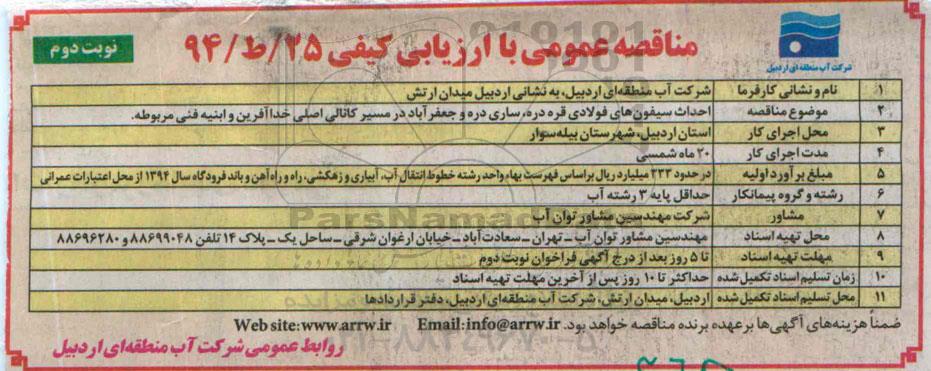 مناقصه عمومی با ارزیابی کیفی ۲۵/ط/۹۴
نوبت دوم
شرکت آب منطقه ای اردبیل
۱ نام و نشانی کارفرما شرکت آب منطقه‌ای اردبیل، به نشانی اردبیل میدان ارتش
۲ موضوع مناقصه احداث سیفون‌های فولادی قره دره، ساری دره و جعفرآباد در مسیر کانالی اصلی خداآفرین و ابنیه فنی مربوطه.
۳ محل اجرای کار استان اردبیل، شهرستان بیله‌سوار
۴ مدت اجرای کار ۲۰ ماه شمسی
۵ مبلغ برآورد اولیه در حدود ۳۳۳ میلیارد ریال براساس فهرست بهاء واحد رشته خطوط انتقال آب، آبیاری و زهکشی، راه و راه‌آهن و باند فرودگاه سال ۱۳۹۴ از محل اعتبارات عمرانی
۶ رشته و گروه پیمانکار حداقل پایه ۳ رشته آب
۷ مشاور شرکت مهندسین مشاور توان آب
۸ محل تهیه اسناد مهندسین مشاور توان آب ـ تهران ـ سعادت‌آباد ـ خیابان ارغوان شرقی ـ ساحل یک ـ پلاک ۱۴ تلفن ۸۸۶۹۹۰۴۸ و ۸۸۶۹۶۲۸۰
۹ مهلت تهیه اسناد تا ۵ روز بعد از درج آگهی فراخوان نوبت دوم
۱۰ زمان تسلیم اسناد تکمیل شده حداکثر تا ۱۰ روز پس از آخرین مهلت تهیه اسناد
۱۱ محل تسلیم اسناد تکمیل شده اردبیل، میدان ارتش، شرکت آب منطقه‌ای اردبیل، دفتر قراردادها
ضمناً هزینه‌های آگهی‌ها برعهده برنده مناقصه خواهد بود. Email:info@arrw.ir Web site:www.arrw.ir
روابط عمومی شرکت آب منطقه‌ای اردبیل
ParsNamad